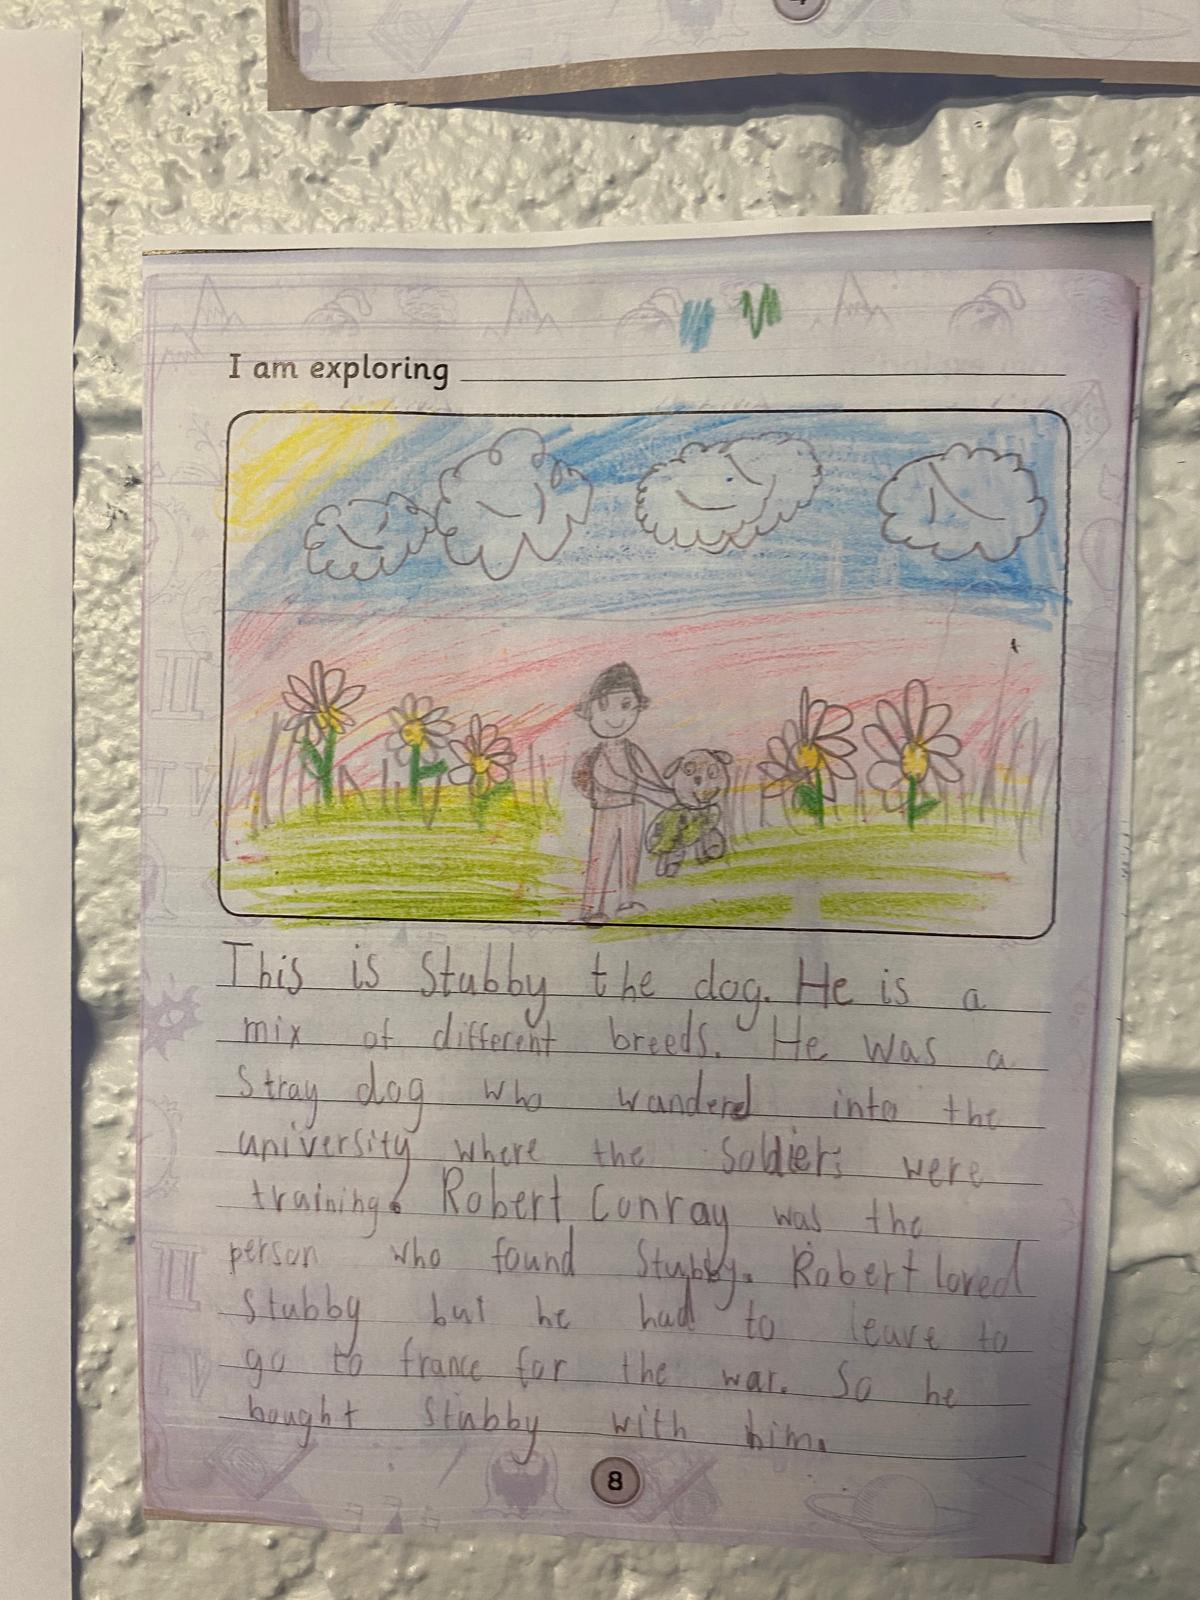 I am exploring
This is Stubby the dog. He is a
mix of different breeds. He was a
Stray dog who wanderd into the
university where the Soldiers were
training. Robert Conray was the
person who found Stubby. Robert loved
Stubby but he had to leave to
go to france for the war. So he
bought Stubby with him.
8